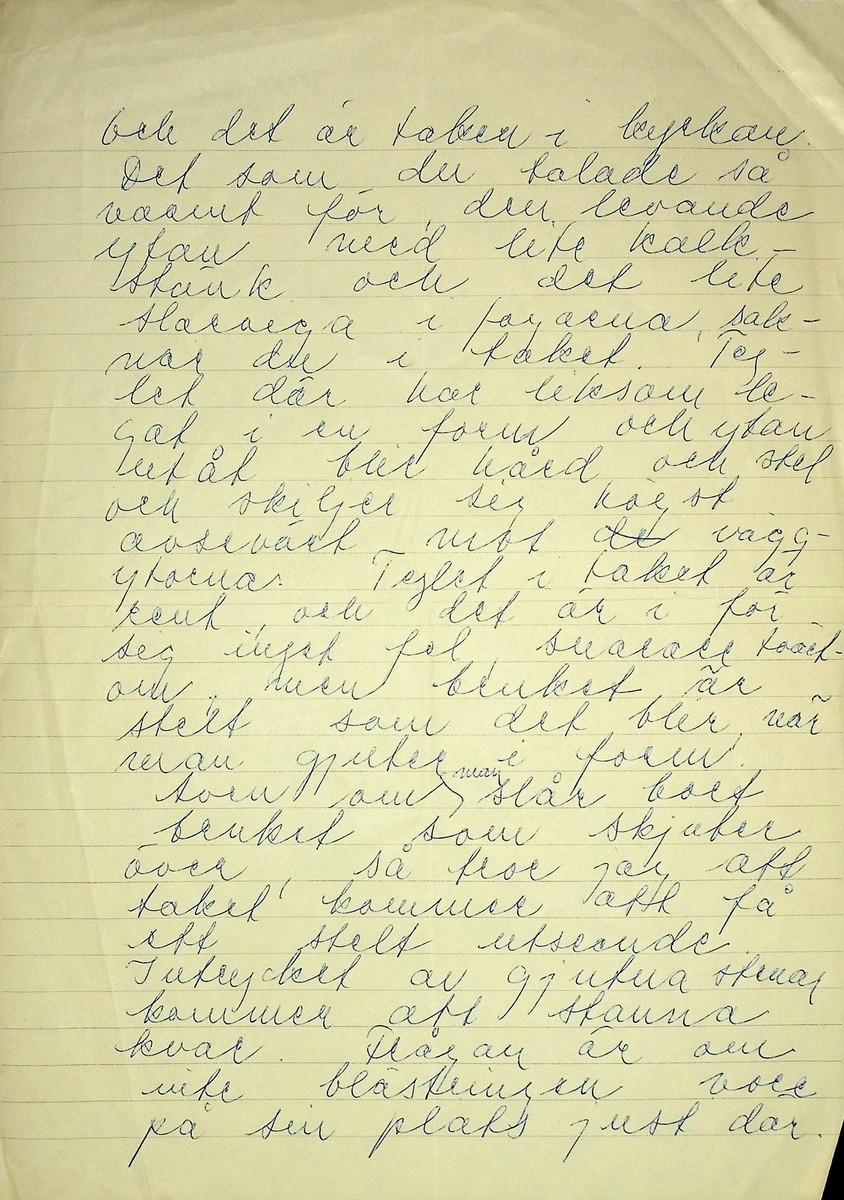 och det är taken i kyrkan.
Det som du talade så
varmt för, den levande
ytan med lite kalk-
stänk och det lite
slarviga i fogarna, sak-
nar du i taket. Teg-
let där har liksom le-
gat i en form och ytan
utåt blir hård och stel
och skiljer sig högst
avsevärt mot de vägg-
ytorna. Teglet i taket är
rent, och det är i för
sig inget fel, snarare tvärt-
om, men bruket är
stelt som det blir när
man gjuter i form.
Även om man slår bort
bruket som skjuter
över, så tror jag att
taket kommer att få
ett stelt utseende.
Intrycket av gjutna stenar
kommer att stanna
kvar. Frågan är om
inte blästringen vore
på sin plats just där.